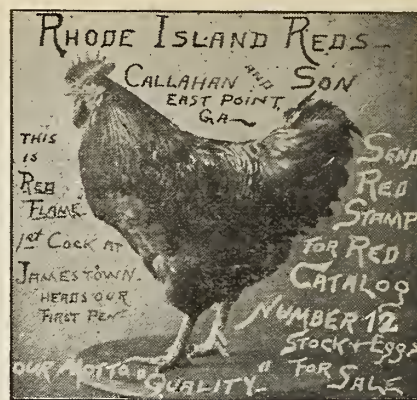 RHODE ISLAND REDS
CALLAHAN AND SON
EAST POINT,
GA
THIS
IS
RED
FLAME
1st COCK AT
JAMESTOWN
HEADS OUR
FIRST PEN
SEND
RED
STAMP
FOR RED
CATALOG
NUMBER 12
STOCK & EGGS
FOR SALE
OUR MOTTO "QUALITY"